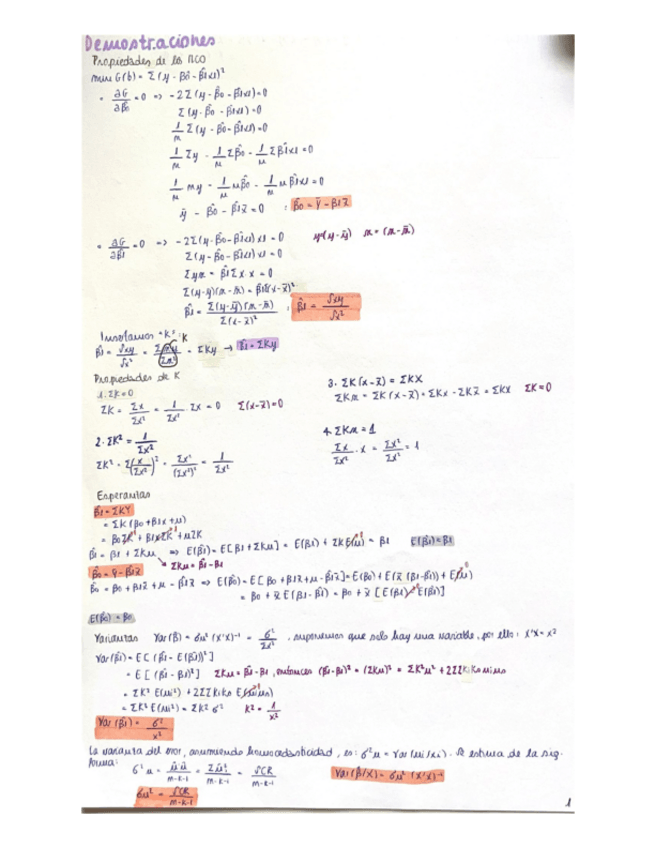 Demostraciones
Propiedades de los MCO
min G(b) = Σ(y - β̂0 - β̂1x1)²
· ∂G/∂β̂0 = 0 => -2Σ(y - β̂0 - β̂1x1) = 0
Σ(y - β̂0 - β̂1x1) = 0
1/n Σ(y - β̂0 - β̂1x1) = 0
1/n Σy - 1/n Σβ̂0 - 1/n Σβ̂1x1 = 0
1/n ny - 1/n nβ̂0 - 1/n nβ̂1x1 = 0
ȳ - β̂0 - β̂1x̄ = 0 ; β̂0 = ȳ - β̂1x̄
· ∂G/∂β̂1 = 0 => -2Σ(y - β̂0 - β̂1x1)x1 = 0 y=(y-ȳ) x=(x-x̄)
Σ(y - β̂0 - β̂1x1)x1 = 0
Σyx = β̂1Σx x = 0
Σ(y-ȳ)(x-x̄) = β̂1Σ(x-x̄)²
β̂1 = Σ(y-ȳ)(x-x̄) / Σ(x-x̄)² ; β̂1 = Sxy / Sx²
Insertamos "K": K
β̂1 = Sxy/Sx² = Σxy/Σx² = ΣKy → β̂1 = ΣKy
Propiedades de K
1. ΣK=0
ΣK = Σx/Σx² = 1/Σx² · Σx = 0 Σ(x-x̄)=0
2. ΣK² = 1/Σx²
ΣK² = Σ(x/Σx²)² = Σx²/(Σx²)² = 1/Σx²
3. ΣK(x-x̄) = ΣKX
ΣKx = ΣK(x-x̄) = ΣKx - ΣKx̄ = ΣKx ΣK=0
4. ΣKx = 1
Σx/Σx² · x = Σx²/Σx² = 1
Esperanzas
β̂1 = ΣKY
= ΣK(β0 + β1x + u)
= β0ΣK⁰ + β1xΣK¹ + uΣK
β̂1 = β1 + ΣKu => E(β̂1) = E[β1 + ΣKu] = E(β1) + ΣKE(u)⁰ = β1 E(β̂1) = β1
↘ ΣKu = β̂1 - β1
β̂0 = ȳ - β̂1x̄
β̂0 = β0 + β1x̄ + u - β̂1x̄ => E(β̂0) = E[β0 + β1x̄ + u - β̂1x̄] = E(β0) + E(x̄(β1-β̂1)) + E(u)⁰
= β0 + x̄E(β1 - β̂1) = β0 + x̄[E(β1) - E(β̂1)]
E(β̂0) = β0
Varianzas Var(β̂) = σu²(X'X)⁻¹ = σ²/Σx² . suponemos que solo hay una variable, por ello: X'X = x²
Var(β̂1) = E[(β̂1 - E(β̂1))²]
= E[(β̂1 - β1)²] ΣKu = β̂1 - β1, entonces (β̂1-β1)² = (ΣKu)² = ΣK²u² + 2ΣΣKiKsuius
= ΣK² E(ui²) + 2ΣΣKiKs E(uius)⁰
= ΣK² E(ui²) = ΣK² σ² K² = 1/x²
Var(β̂1) = σ²/x²
La varianza del error, asumiendo homocedasticidad, es: σ²u = Var(ui/xi). Se estima de la sig.
forma:
σ²u = û'û/n-k-1 = Σûi²/n-k-1 = SCR/n-k-1 Var(β̂/X) = σu²(X'X)⁻¹
σu² = SCR/n-k-1
1